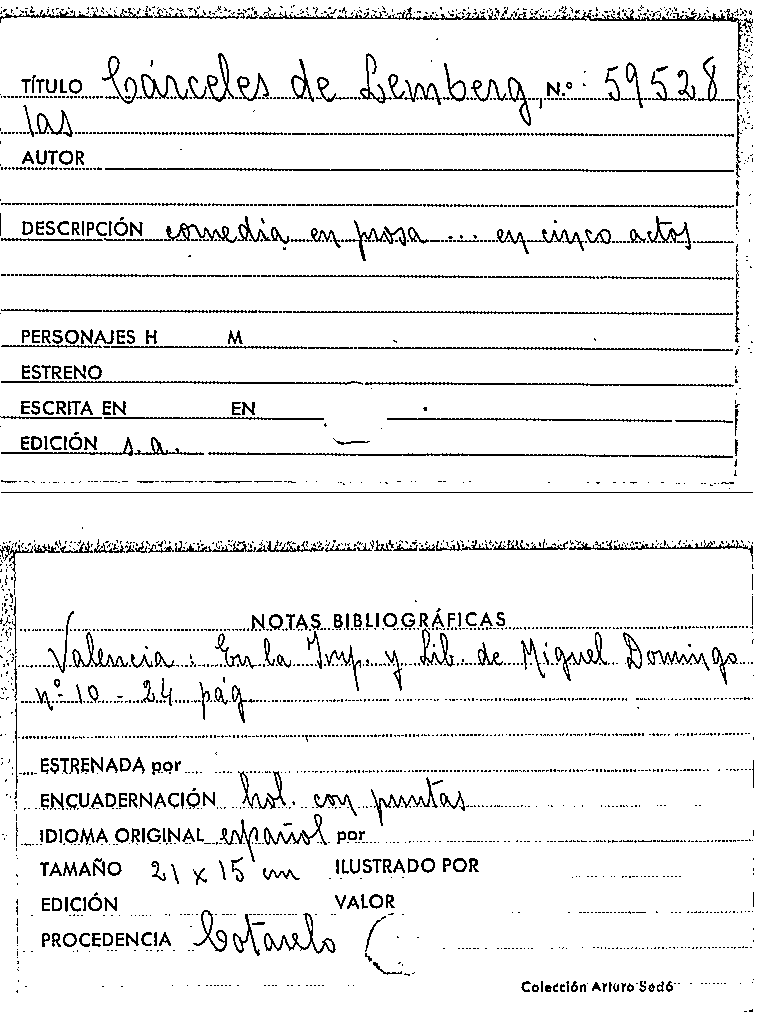 TÍTULO Cárceles de Lemberg, N.º: 59528
las
AUTOR
DESCRIPCIÓN comedia en prosa ... en cinco actos
PERSONAJES H M
ESTRENO
ESCRITA EN EN
EDICIÓN s.a.
NOTAS BIBLIOGRÁFICAS
Valencia: En la Imp. y Lib. de Miguel Domingo
nº 10 - 24 pág
ESTRENADA por
ENCUADERNACIÓN hol. con puntas
IDIOMA ORIGINAL español por
TAMAÑO 21 x 15 cm ILUSTRADO POR
EDICIÓN VALOR
PROCEDENCIA Cotarelo
Colección Arturo Sedó